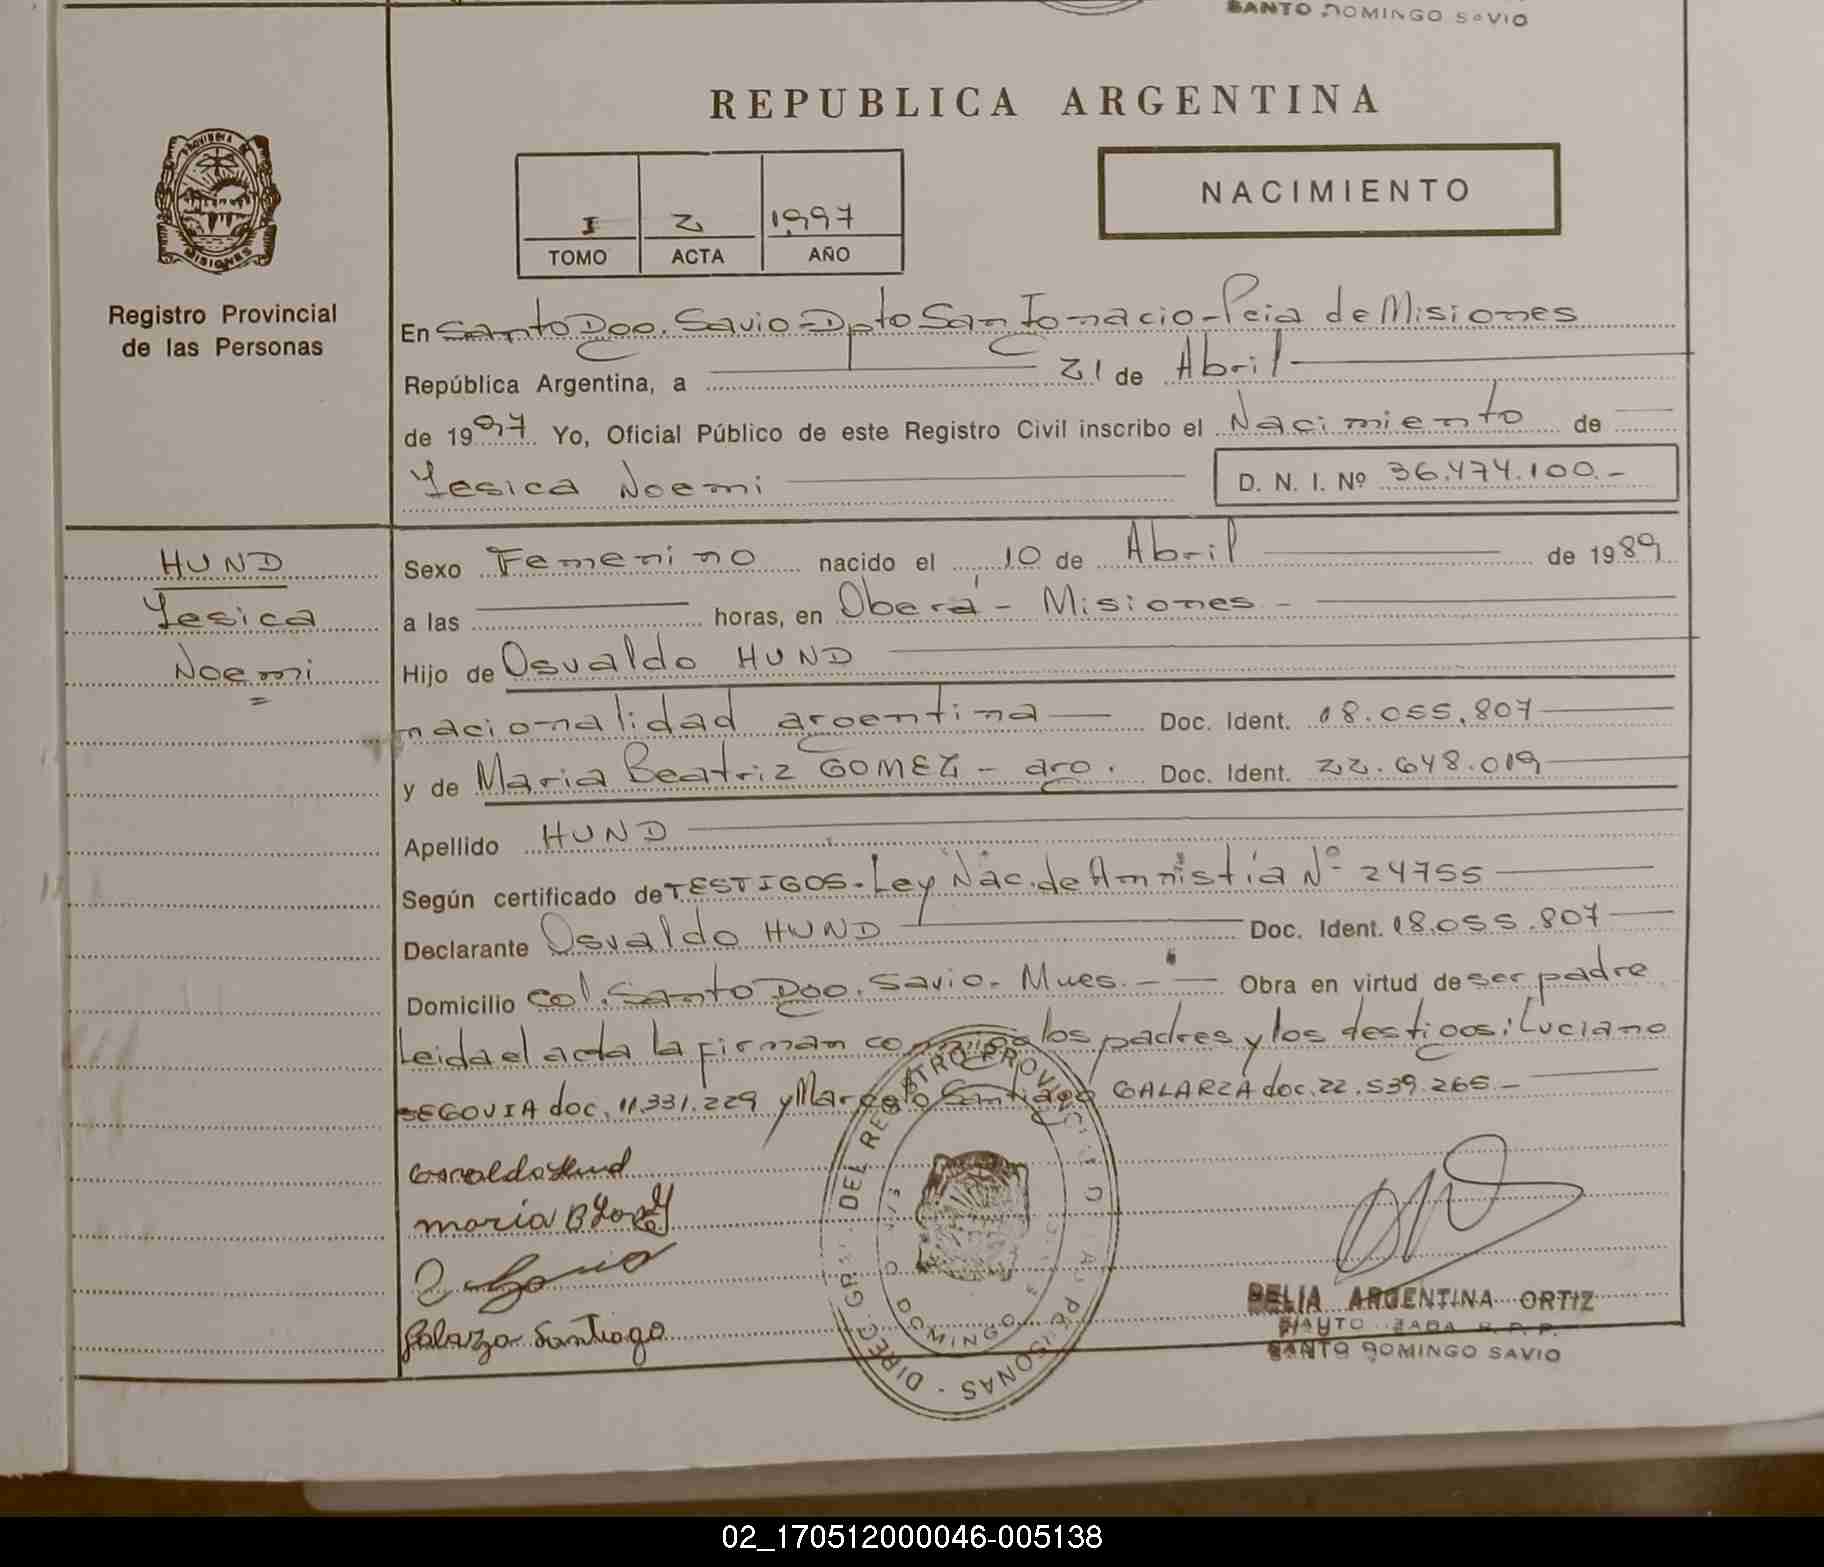 SANTO DOMINGO SAVIO
REPUBLICA ARGENTINA
PROVINCIA DE
MISIONES
NACIMIENTO
I 2 1997
TOMO ACTA AÑO
Registro Provincial
de las Personas
En Santo Dgo. Savio - Dpto San Ignacio - Pcia de Misiones
República Argentina, a 21 de Abril
de 1997 Yo, Oficial Público de este Registro Civil inscribo el Nacimiento de
Yesica Noemi D. N. I. Nº 36.474.100.-
HUND
Yesica
Noemi
Sexo Femenino nacido el 10 de Abril de 1989
a las horas, en Oberá - Misiones -
Hijo de Osvaldo HUND
nacionalidad argentina Doc. Ident. 18.055.807
y de Maria Beatriz GOMEZ - arg. Doc. Ident. 22.648.019
Apellido HUND
Según certificado de TESTIGOS - Ley Nac. de Amnistía Nº 24755
Declarante Osvaldo HUND Doc. Ident. 18.055.807
Domicilio Col. Santo Dgo. Savio - Mnes. - Obra en virtud de ser padre
Leida el acta la firman conmigo los padres y los testigos: Luciano
SEGOVIA doc. 11.331.229 y Marcelo Santiago GALARZA doc. 22.539.265.-
Osvaldo Hund
maria B
Galarza Santiago
DIREC. GRAL. DEL REGISTRO PROVINCIAL PERSONAS
DOMINGO
DELIA ARGENTINA ORTIZ
SANTO DOMINGO SAVIO
02_170512000046-005138